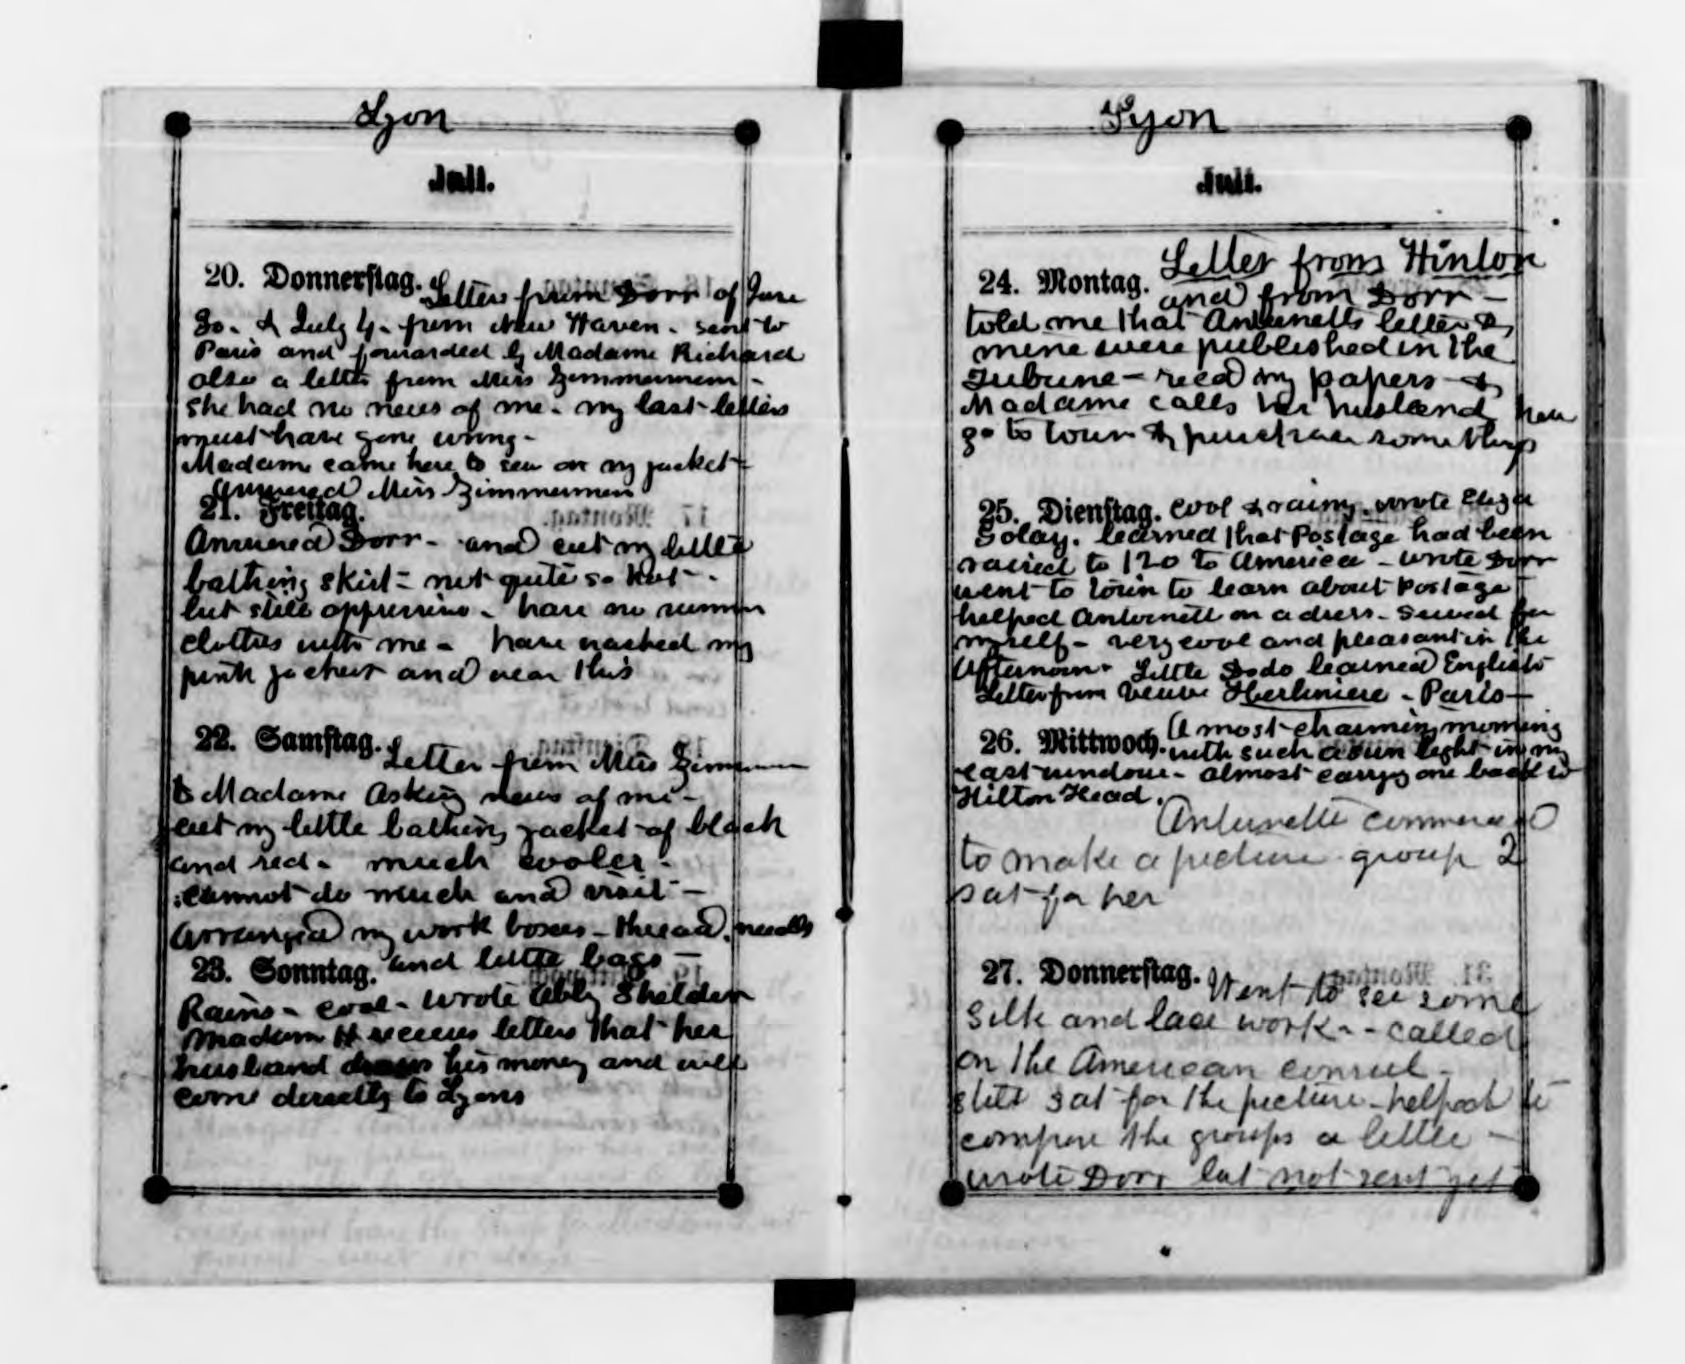 Lyon
Juli.
20. Donnerstag. Letters from Dorr of June
30. & July 4. from New Haven. sent to
Paris and forwarded by Madame Richard
also a letter from Miss Zimmermann -
She had no news of me. my last letters
must have gone wrong -
Madame came here to sew on my jacket -
Answered Miss Zimmermann
21. Freitag.
Answered Dorr - and cut my little
bathing skirt - not quite so hot -
but still oppressive - have no summer
clothes with me - have washed my
pink jacket and wear this
22. Samstag. Letter from Miss Zimmermann
to Madame Asking news of me -
cut my little bathing jacket of black
and red - much cooler -
cannot do much and visit -
Arranged my work boxes - thread, needles
and little bags -
23. Sonntag.
Rains - cool - wrote Abby Sheldon
Madam H receives letters that her
husband draws his money and will
come directly to Lyons
Lyon
Juli.
24. Montag. Letter from Hinton
and from Dorr -
told me that Antoinette's letter &
mine were published in the
Tribune - recd my papers - &
Madame calls her husband
go to town & purchase some things
25. Dienstag. Cool & rainy. wrote Eliza
Golay. learned that Postage had been
raised to 1 20 to America - wrote Dorr
went to town to learn about Postage
helped Antoinette on a dress - sewed for
myself - very cool and pleasant in the
Afternoon - Little Dodo learned English
Letter from Veuve - Paris -
26. Mittwoch. A most charming morning
with such a sun light in my
east window - almost carrying one back to
Hilton Head.
Antoinette commenced
to make a picture group I
sat for her
27. Donnerstag. Went to see some
Silk and lace work - - called
on the American consul -
still sat for the picture - helped to
compose the groups a little -
wrote Dorr but not sent yet